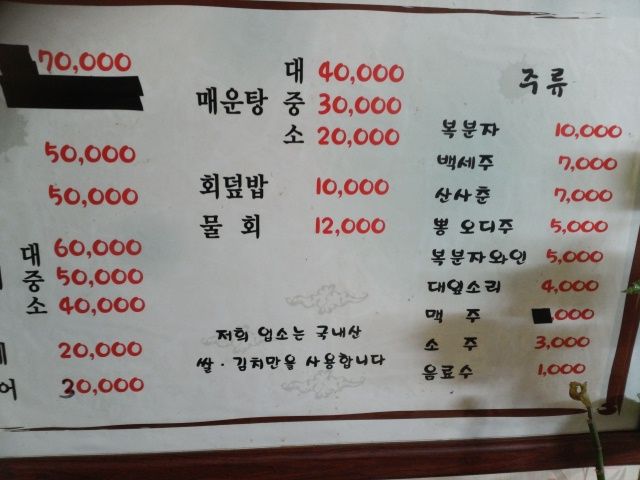 70,000
50,000
50,000
대 60,000
중 50,000
소 40,000
20,000
어 30,000
대 40,000
매운탕 중 30,000
소 20,000
회덮밥 10,000
물 회 12,000
저희 업소는 국내산
쌀·김치만을 사용합니다
주류
복분자 10,000
백세주 7,000
산사춘 7,000
뽕 오디주 5,000
복분자와인 5,000
대잎소리 4,000
맥 주 ,000
소 주 3,000
음료수 1,000